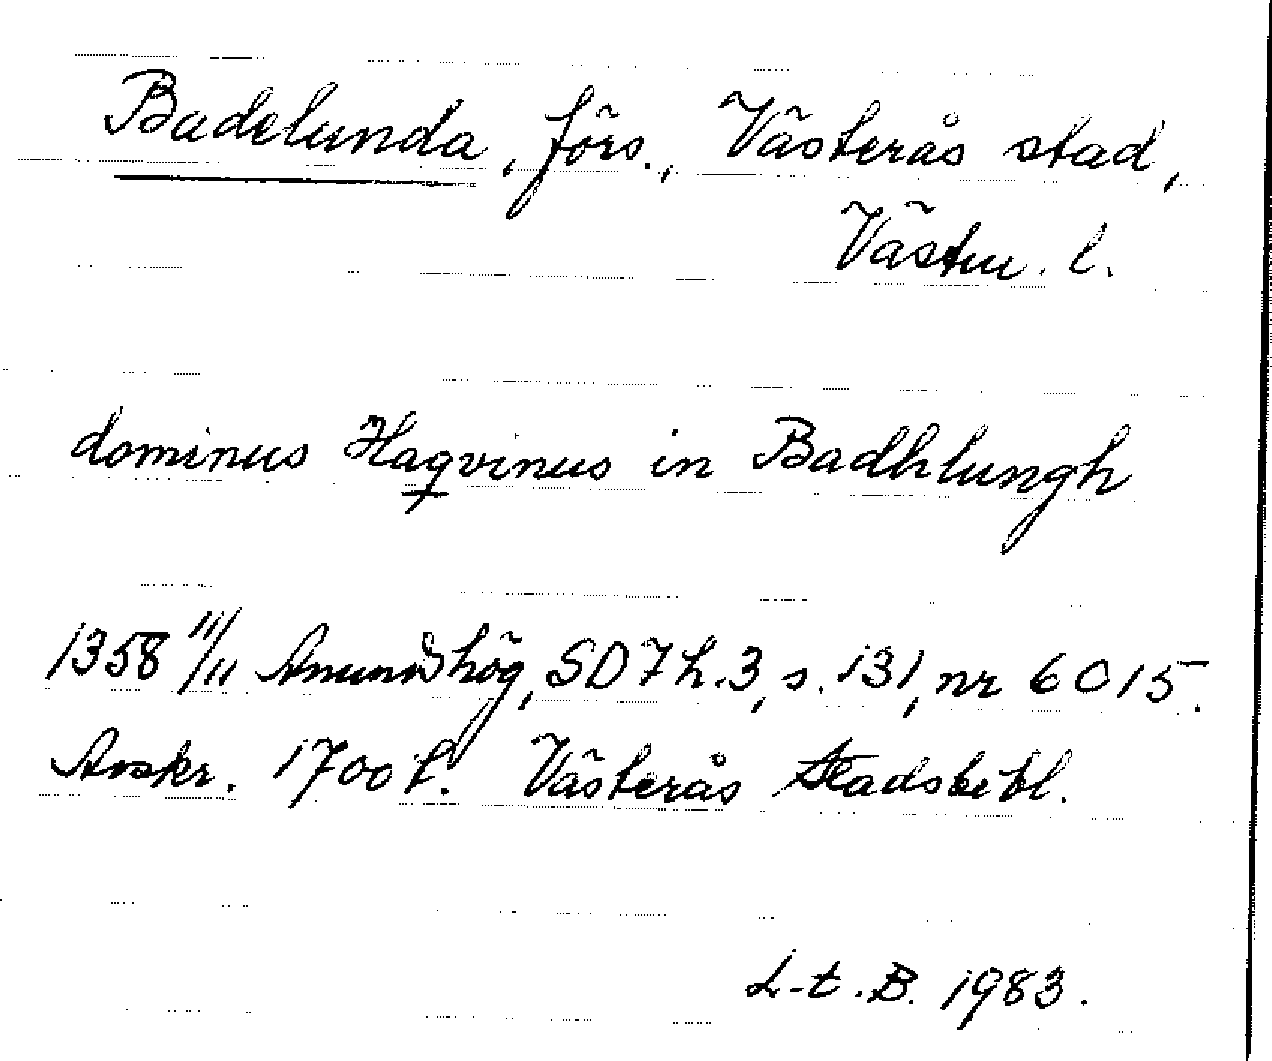 Badelunda, förs., Västerås stad,
Västm. l.
dominus Haqvinus in Badhlungh
1358 11/11 Anundshög, SD 7 h.3, s. 131, nr 6015.
Avskr. 1700 t. Västerås Stadsbibl.
L-t. B. 1983.